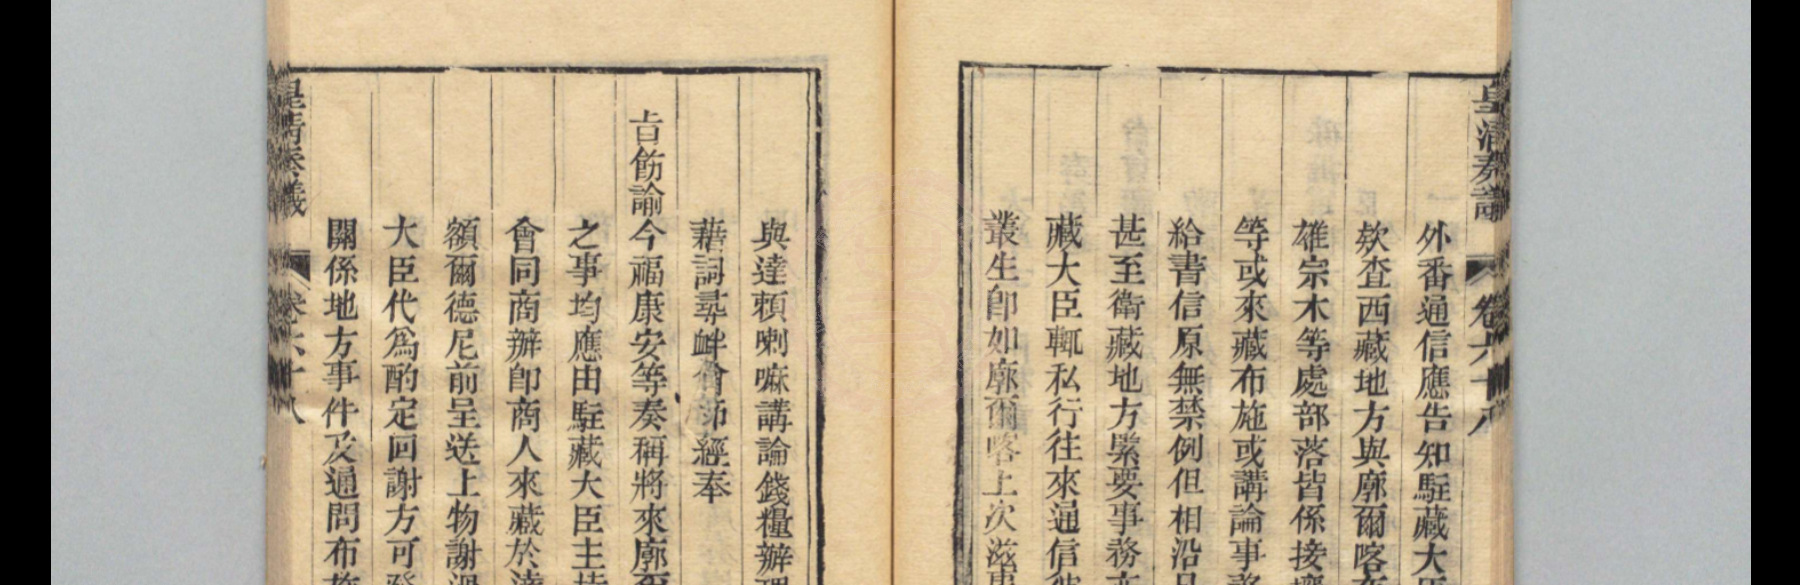 皇清奏議
卷六十八
外番通信應告知駐藏大臣
欵查西藏地方與廓爾喀
雄宗木等處部落皆係接壤
等或來藏布施或講論事務
給書信原無禁例但相沿日
甚至衛藏地方緊要事務亦
藏大臣輒私行往來通信
叢生卽如廓爾喀上次滋事
與達賴喇嘛講論錢糧辦理
藉詞尋衅會節經奉
旨飭諭今福康安等奏稱將來廓爾
之事均應由駐藏大臣主持
會同商辦卽商人來藏於達
額爾德尼前呈送上物謝過
大臣代爲酌定回謝方可發
關係地方事件及通問布施
皇清奏議
卷六十八